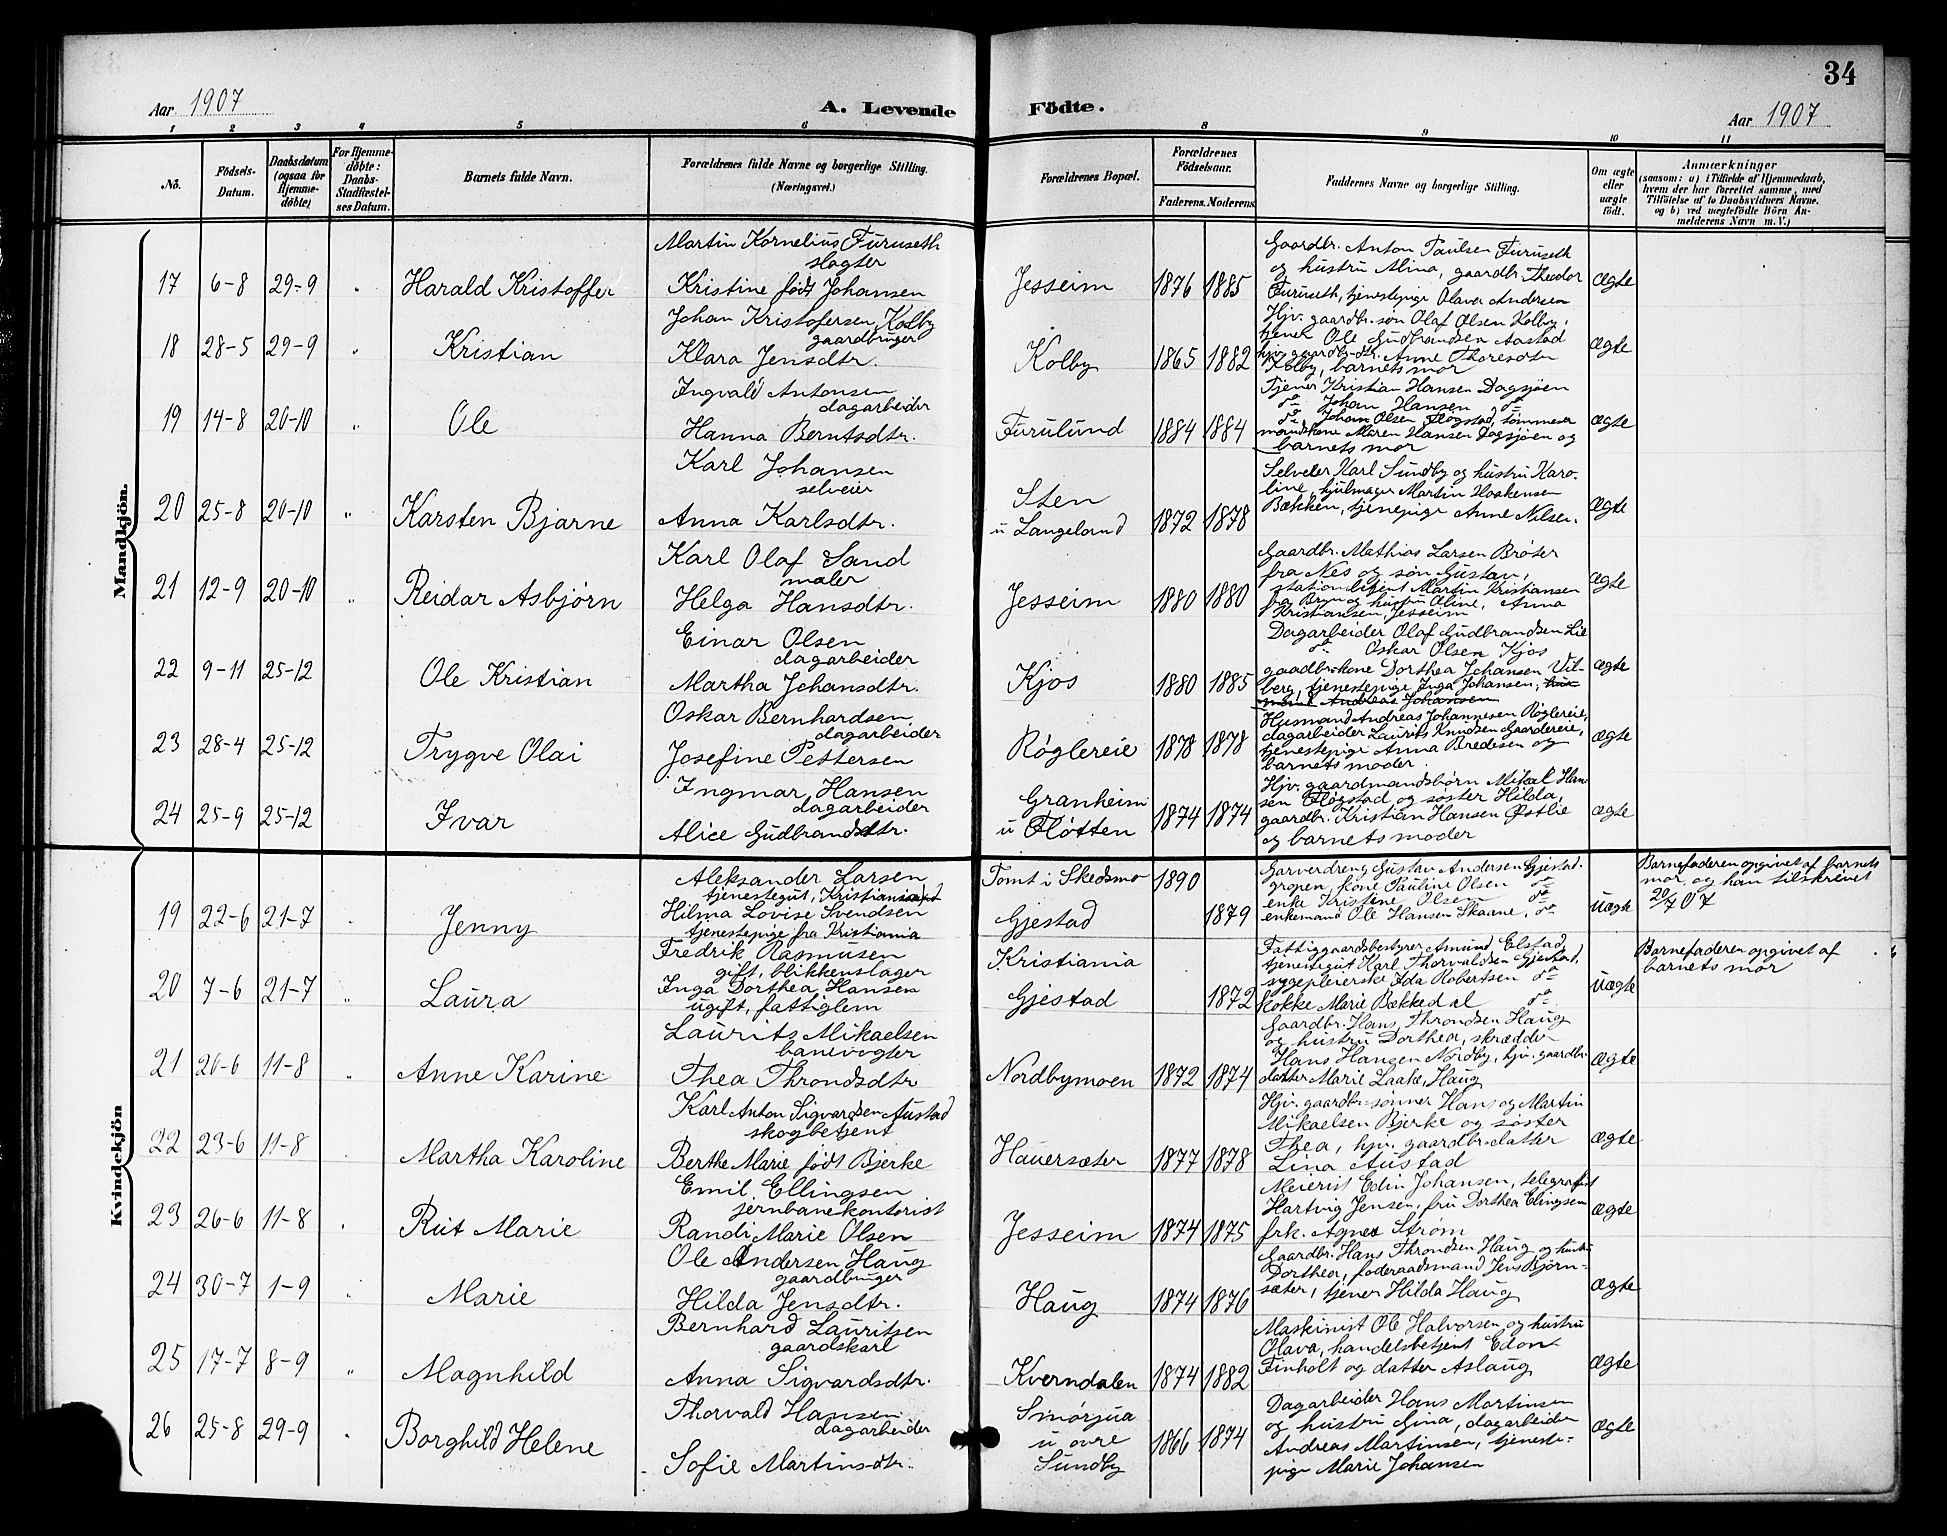 34
Aar 1907
A. Levende
Födte.
Aar 1907
1 2 3 4 5 6 8 9 10 11
No.
Födsels-Datum.
Daabsdatum (ogsaa for Hjemme-döbte)
For Hjemme-döbte: Daabs-Stadfæstel-ses Datum.
Barnets fulde Navn.
Forældrenes fulde Navne og borgerlige Stilling.
(Næringsvei.)
Forældrenes Bopæl.
Forældrenes Födselsaar.
Faderens. Moderens.
Faddernes Navne og borgerlige Stilling.
Om ægte eller uægte født.
Anmærkninger
(saasom: a) i Tilfælde af Hjemmedaab,
hvem der har forrettet samme, med
Tilföielse af to Daabsvidners Navne.
og b) ved uægtefødte Börn An-
melderens Navn m. V.)
Mandkjön.
17 6-8 29-9 " Harald Kristoffer
Martin Kornelius Furuseth
slagter
Kristine født Johansen
Jesseim 1876 1885
Gaardbr. Anton Paulsen Furuseth
og hustru Alina, gaardbr. Theodor
Furuseth, tjenestepige Olava Andersen
Ægte
18 28-5 29-9 " Kristian
Johan Kristofersen Kolby
gaardbruger
Klara Jensdtr.
Kolby 1865 1882
Hjv. gaardbr. søn Olaf Olsen Kolby,
tjener Ole Gudbrandsen Aastad
hjv. gaardbr.dtr. Anne Thoresdtr
Kolby, barnets mor
Ægte
19 14-8 20-10 " Ole
Ingvald Antonsen
dagarbeider
Hanna Berntsdtr.
Furulund 1884 1884
Tjener Kristian Hansen Dagsjøen
do Johan Hansen do
do Johan Olsen Fløgstad, tømmer-
mandskone Maren Hansen Dagsjøen og
barnets mor
Ægte
20 25-8 20-10 " Karsten Bjarne
Karl Johansen
selveier
Anna Karlsdtr.
Sten
u Langeland 1872 1878
Selveier Karl Sundby og hustru Karo-
line, hjulmager Martin Haakensen
Bækken, tjenepige Anne Nilsen.
Ægte
21 12-9 20-10 " Reidar Asbjørn
Karl Olaf Sand
maler
Helga Hansdtr.
Jesseim 1880 1880
Gaardbr. Mathias Larsen Brøter
fra Nes og søn Gustav,
stationsbetjent Martin Kristiansen
fra Bryn og hustru Oline, Anna
Kristiansen, Jesseim
Ægte
22 9-11 25-12 Ole Kristian
Einar Olsen
dagarbeider
Martha Johansdtr.
Kjos 1880 1885
Dagarbeider Olaf Gudbrandsen Lie
do Oskar Olsen Kjos
gaadbr.kone Dorthea Johansen Vil-
berg, tjenestepige Inga Johansen, hus-
mand Andreas Johansen
Ægte
23 28-4 25-12 Trygve Olai
Oskar Bernhardsen
dagarbeider
Josefine Pettersen
Røglereie 1878 1878
Husmand Andreas Johannesen Røglereie,
dagarbeider Laurits Knudsen Gaardereie,
tjenestepige Anna Bredesen og
barnets moder.
Ægte
24 25-9 25-12 Ivar
Ingmar Hansen
dagarbeider
Alice Gudbrandsdtr.
Granheim
u Fløtten 1874 1874
Hjv. gaardmandsbørn Mikal Han-
sen Fløgstad og søster Hilda,
gaardbr. Kristian Hansen Østlie
og barnets moder
Ægte
Kvindekjön
19 22-6 21-7 " Jenny
Aleksander Larsen
tjenestegut, Kristiansand
Hilma Lovise Svendsen
tjenestepige fra Kristiania
Tomt i Skedsmo 1890
Gjestad 1879
Garverdreng Gustav Andersen Gjestad.
gropen, kone Pauline Olsen do
enke Kristine Olsen do
enkemand Ole Hansen Skaane, do
Uægte
Barnefaderen opgivet af barnets
mor, og han tilskrevet
20/7 07
20 7-6 21-7 " Laura
Fredrik Rasmusen
gift, blikkenslager
Inga Dorthea Hansen
ugift, fattiglem
Kristiania
Gjestad 1872
Fattiggaardsbestyrer Amund Elstad,
tjenestegut Karl Thorvaldsen Gjestad,
sygepleierske Ida Robertsen do
kokke Marie Bækkedal do
Uægte
Barnefaderen opgivet af
barnets mor
21 20-6 11-8 " Anne Karine
Laurits Mikaelsen
banevogter
Thea Throndsdtr
Nordbymoen 1872 1874
Gaardbr. Hans Throndsen Haug
og hustru Dorthea, skrædder
Hans Hansen Nordby, hjv. gaardbr.
datter Marie Laake, Haug
Ægte
22 23-6 11-8 Martha Karoline
Karl Anton Sigvardsen Austad
skogbetjent
Berthe Marie født Bjerke
Hauersæter 1877 1878
Hjv. gaardbr.sønner Hans og Martin
Mikaelsen Bjerke og søster
Thea, hjv. gaardbr.datter
Lina Austad
Ægte
23 26-6 11-8 Rut Marie
Emil Ellingsen
jernbanekontorist
Randi Marie Olsen
Jesseim 1874 1875
Meierist Edin Johansen, telegrafist
Hartvig Jensen, fru Dorthea Elingsen
frk. Agnes Strøm
Ægte
24 30-7 1-9 " Marie
Ole Andersen Haug
gaardbruger
Hilda Jensdtr.
Haug 1874 1876
Gaardbr. Hans Throndsen Haug og hustru
Dorthea, føderaadsmand Jens Bjørn-
sæter, tjener Hilda Haug
Ægte
25 17-7 8-9 " Magnhild
Bernhard Lauritsen
gaardskarl
Anna Sigvardsdtr.
Kverndalen 1874 1882
Maskinist Ole Halvorsen og hustru
Olava, handelsbetjent Edon
Finholt og datter Aslaug
Ægte
26 25-8 29-9 Borghild Helene
Thorvald Hansen
dagarbeider
Sofie Martinsdtr.
Smørjua
u øvre
Sundby 1866 1874
Dagarbeider Hans Martinsen
og hustru Gina, dagarbeider
Andreas Martinsen, tjeneste-
pige Marie Johansen
Ægte